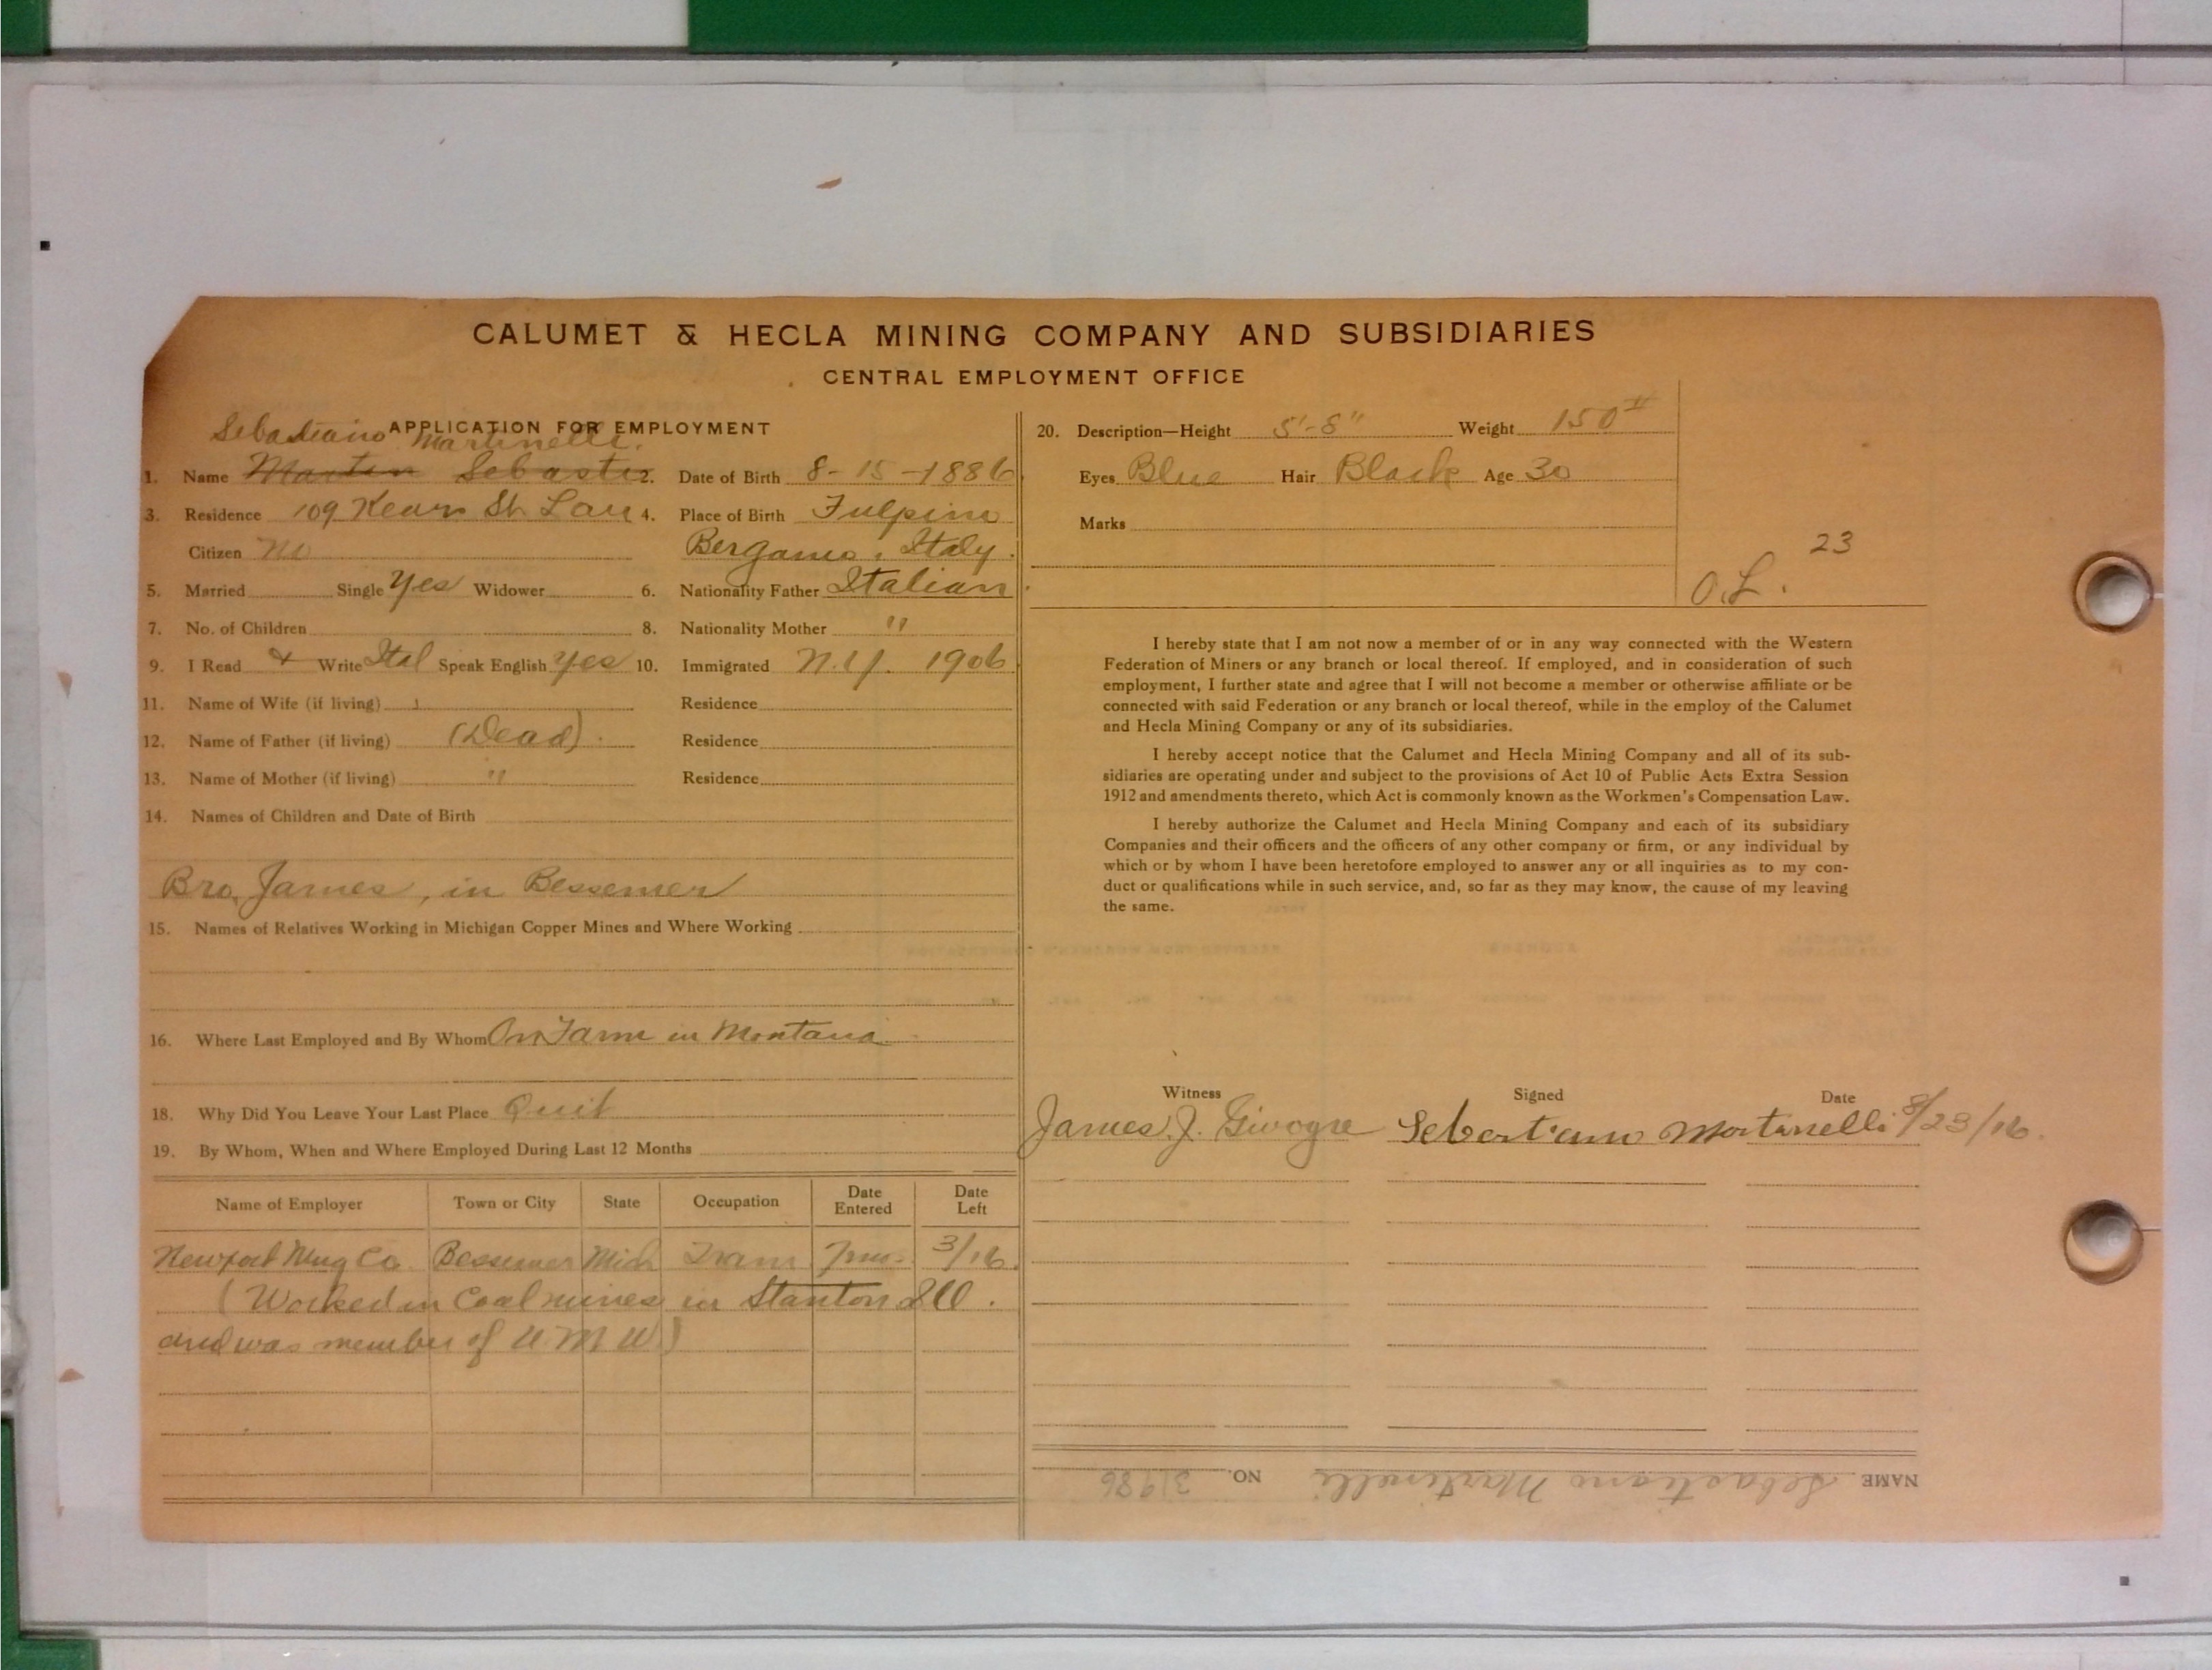 CALUMET & HECLA MINING COMPANY AND SUBSIDIARIES
CENTRAL EMPLOYMENT OFFICE
APPLICATION FOR EMPLOYMENT
Sebastiano Martinelli.
1. Name Martin Sebastia 2. Date of Birth 8-15-1886
3. Residence 109 Kears St Lau 4. Place of Birth Fulpino
Citizen No Bergamo, Italy.
5. Married Single Yes Widower 6. Nationality Father Italian
7. No. of Children 8. Nationality Mother "
9. I Read & Write Ital Speak English Yes 10. Immigrated N.Y. 1906
11. Name of Wife (if living) Residence
12. Name of Father (if living) (Dead). Residence
13. Name of Mother (if living) " Residence
14. Names of Children and Date of Birth
Bro, James, in Bessemer
15. Names of Relatives Working in Michigan Copper Mines and Where Working
16. Where Last Employed and By Whom On Farm in Montana
18. Why Did You Leave Your Last Place Quit
19. By Whom, When and Where Employed During Last 12 Months
Name of Employer Town or City State Occupation Date Entered Date Left
Newport Mng Co Bessemer Mich Tram 7mo. 3/16.
(Worked in Coal mines in Stanton Ill.
and was member of U M W)
20. Description—Height 5'-8" Weight 150#
Eyes Blue Hair Black Age 30
Marks
23
O.L.
I hereby state that I am not now a member of or in any way connected with the Western
Federation of Miners or any branch or local thereof. If employed, and in consideration of such
employment, I further state and agree that I will not become a member or otherwise affiliate or be
connected with said Federation or any branch or local thereof, while in the employ of the Calumet
and Hecla Mining Company or any of its subsidiaries.
I hereby accept notice that the Calumet and Hecla Mining Company and all of its sub-
sidiaries are operating under and subject to the provisions of Act 10 of Public Acts Extra Session
1912 and amendments thereto, which Act is commonly known as the Workmen's Compensation Law.
I hereby authorize the Calumet and Hecla Mining Company and each of its subsidiary
Companies and their officers and the officers of any other company or firm, or any individual by
which or by whom I have been heretofore employed to answer any or all inquiries as to my con-
duct or qualifications while in such service, and, so far as they may know, the cause of my leaving
the same.
Witness Signed Date
James J. Givogre Sebastiano Martinelli 8/23/16.
NAME Sebastiano Martinelli NO. 31986